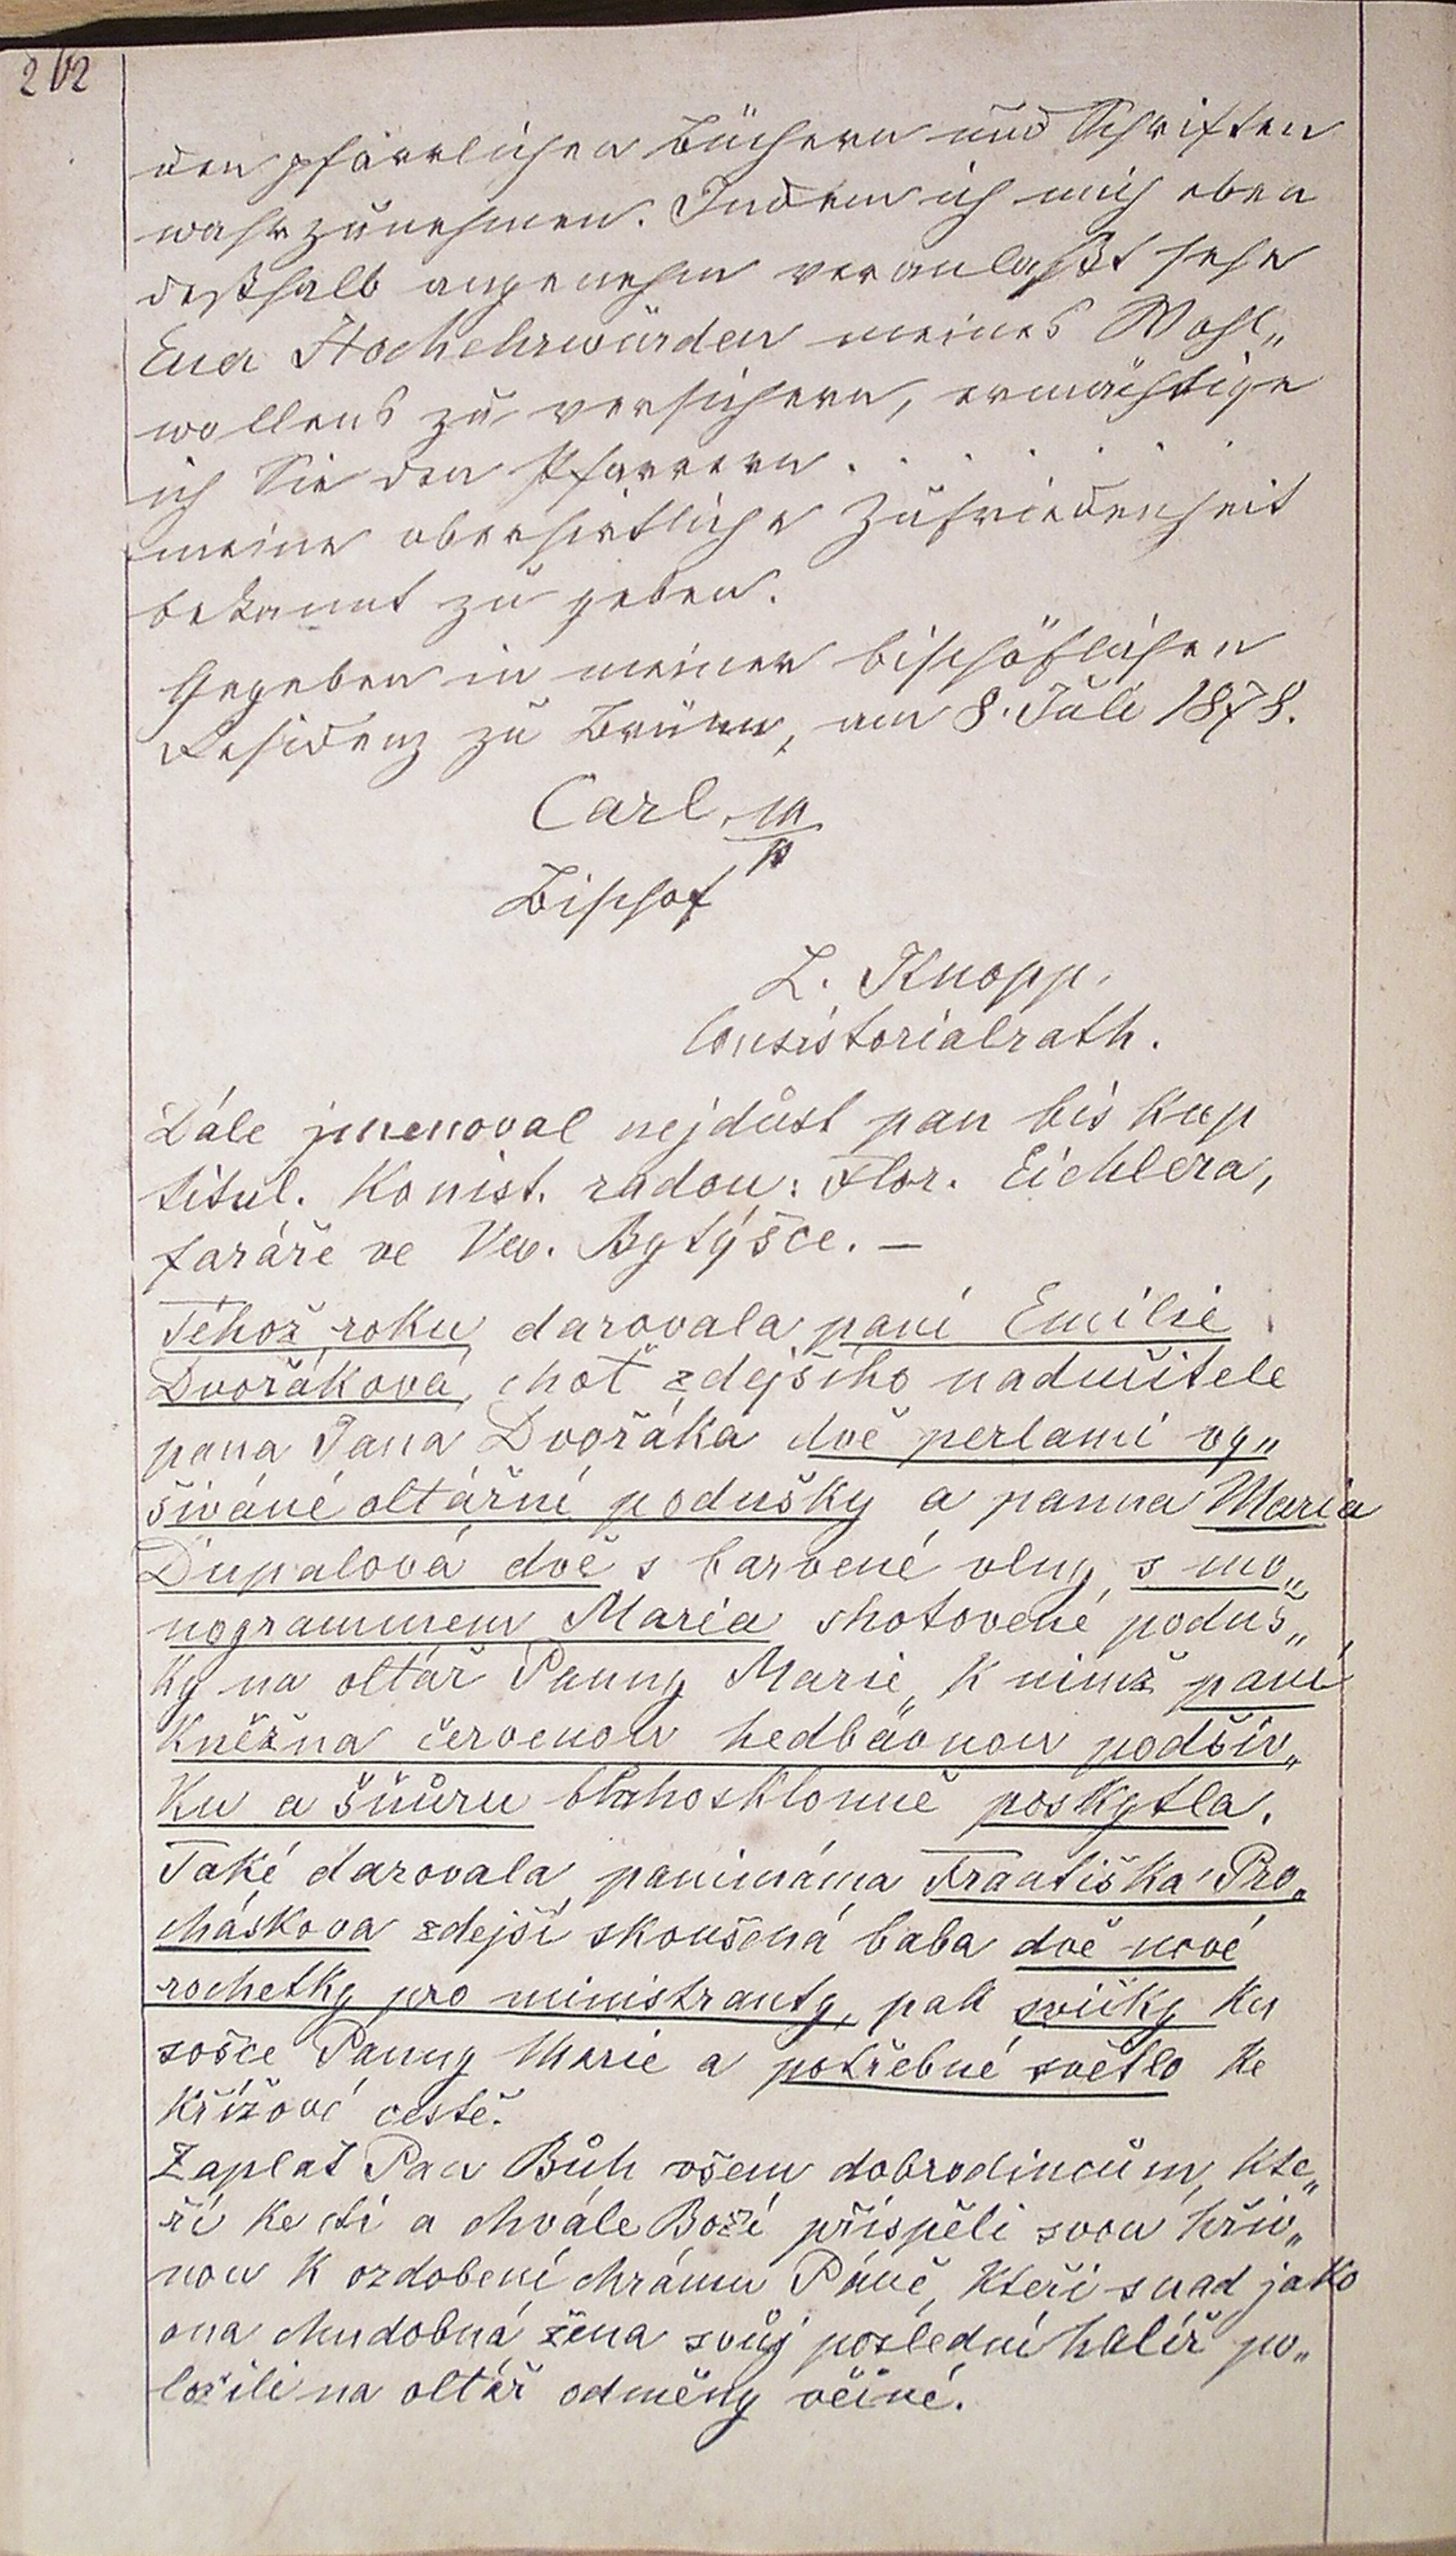 262
den pfärrlichen Büchern und Schriften
wahrzunehmen. Indem ich mich eben
deßhalb angenehm veranlaßt sehe
Euer Hochehrwürden meines Wohl„
wollens zu versichern, ermächtige
ich Sie den Pfarrern . . . . . . .
meine oberhirtliche Zufriedenheit
bekannt zu geben.
Gegeben in meiner bischöflichen
Residenz zu Brünn, am 8. Juli 1878.
Carl m/p
Bischof
L. Knopp.
Consistorialrath.
Dále jmenoval nejdůst pan biskup
titul. Konist. radou: Flor. Eichlera,
faráře ve Vev. Bytýšce. —
Téhož roku darovala paní Emilie
Dvořáková, choť zdejšího nadučitele
pana Jana Dvořáka dvě perlami vy„
šívané oltářní podušky a panna Maria
Dupalová dvě s barvené vlny, s mo„
nogrammem Maria shotovené poduš„
ky na oltář Panny Marie, k nimž paní
Kněžna červenou hedbávnou podšív„
ku a šňůru blahosklonně poskytla.
Také darovala panimáma Františka Pro„
cháskova zdejší skoušená baba dvě nové
rochetky pro ministranty, pak svíčky ku
sošce Panny Marie a potřebné světlo ke
Křížové cestě.
Zaplat Pan Bůh všem dobrodincům, kte„
ří ke cti a chvále Boží přispěli svou hřiv„
nou k ozdobení chrámu Páně, kteří snad jako
ona chudobná žena svůj poslední halíř po„
ložili na oltář odměny věčné.